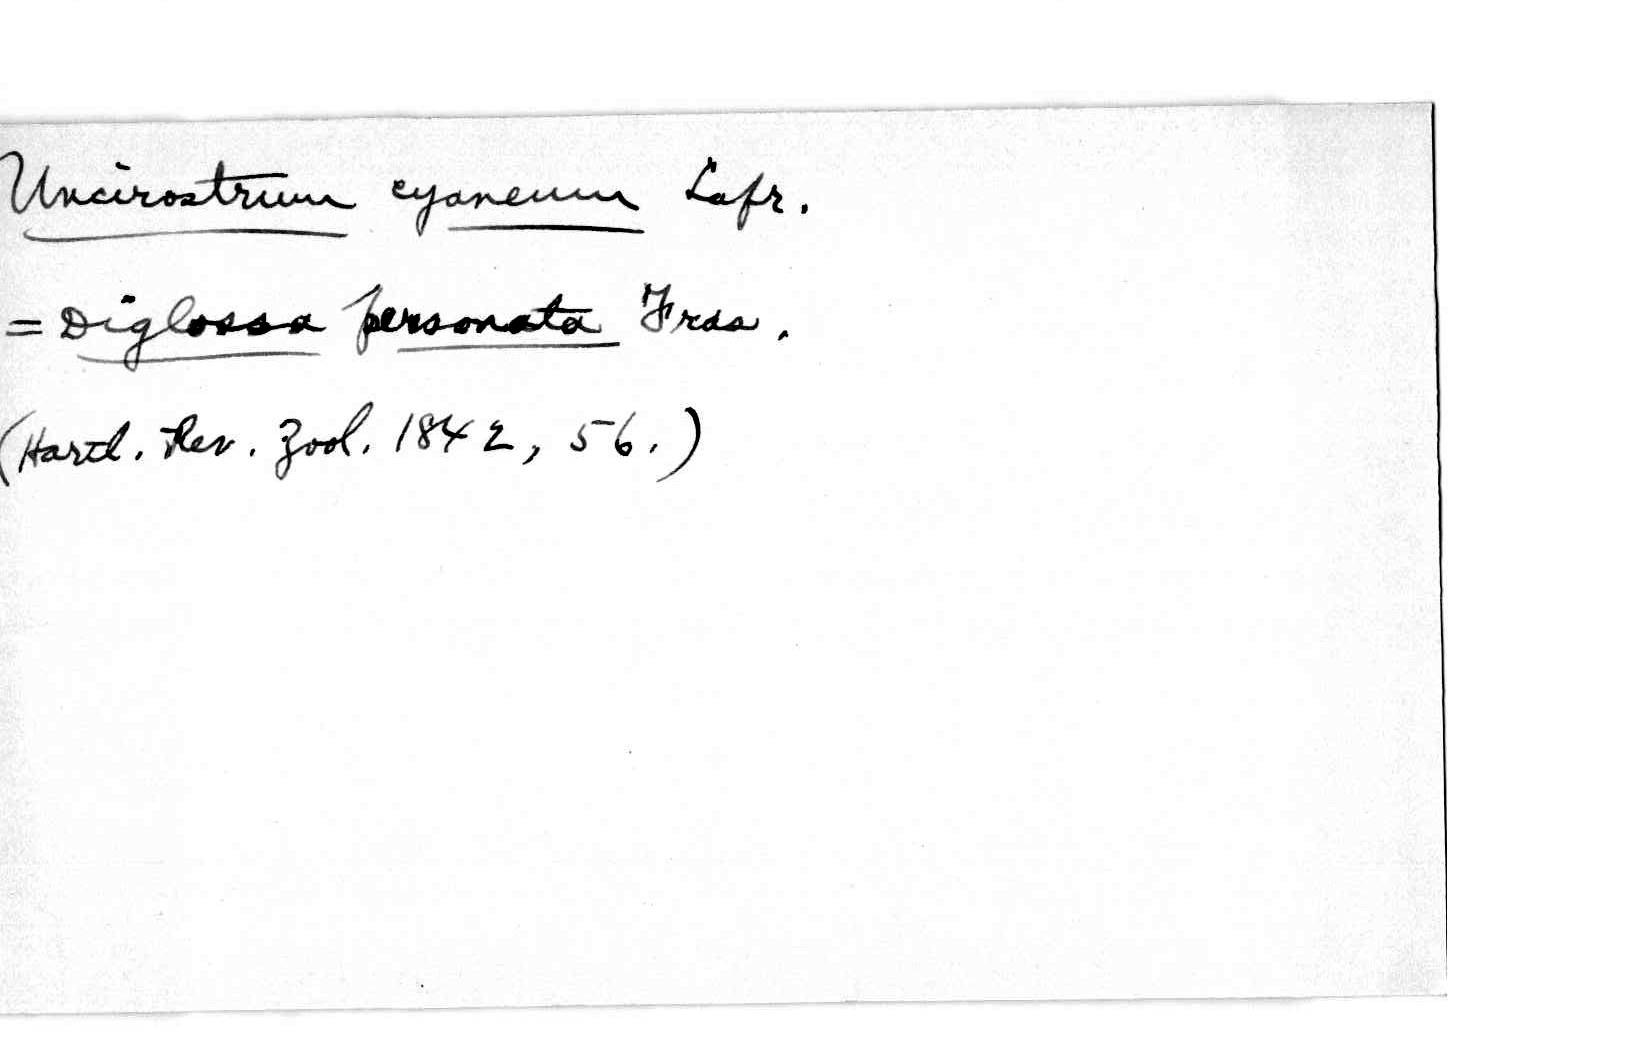 Uncirostrum cyaneum Lafr.
= Diglossa personata Fras.
(Hartl. Rev. Zool. 1842, 56.)